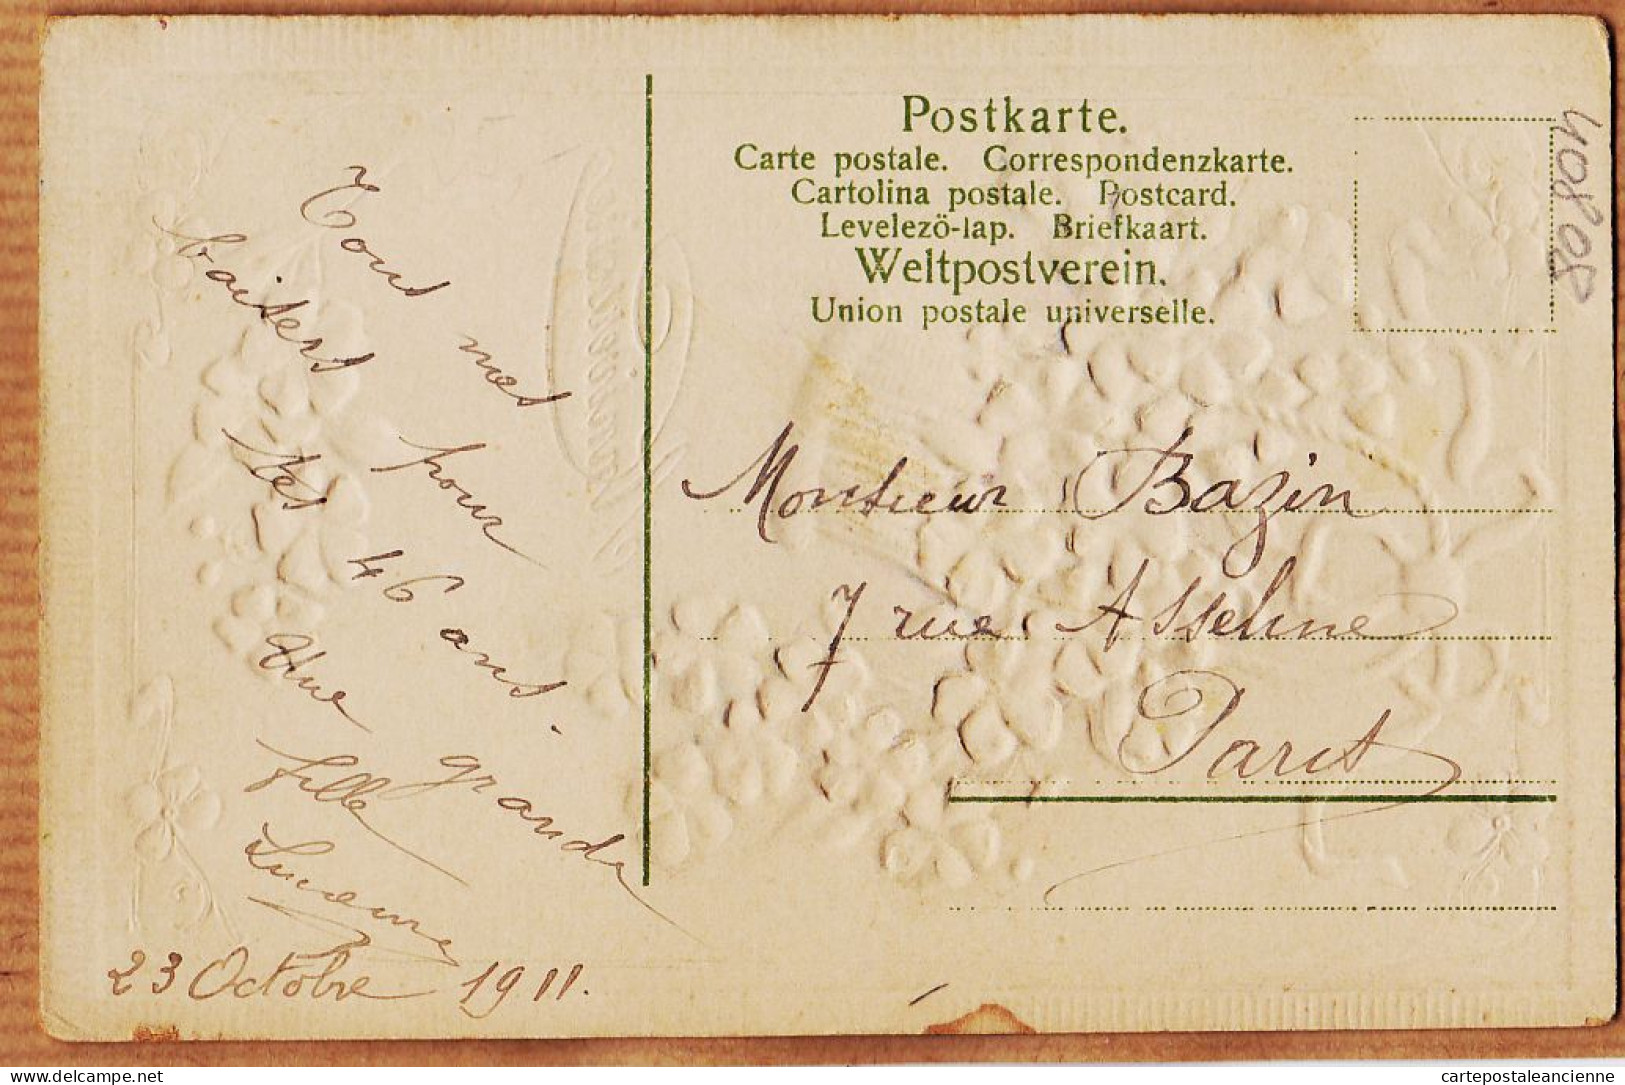 Postkarte.
Carte postale. Correspondenzkarte.
Cartolina postale. Postcard.
Levelezö-lap. Briefkaart.
Weltpostverein.
Union postale universelle.
40808
Tous mes
baisers pour
tes 46 ans.
Une grande
fille
Lucienne
23 Octobre 1911.
Monsieur Bazin
7 rue Asseline
Paris
delcampe.net
cartepostaleancienne